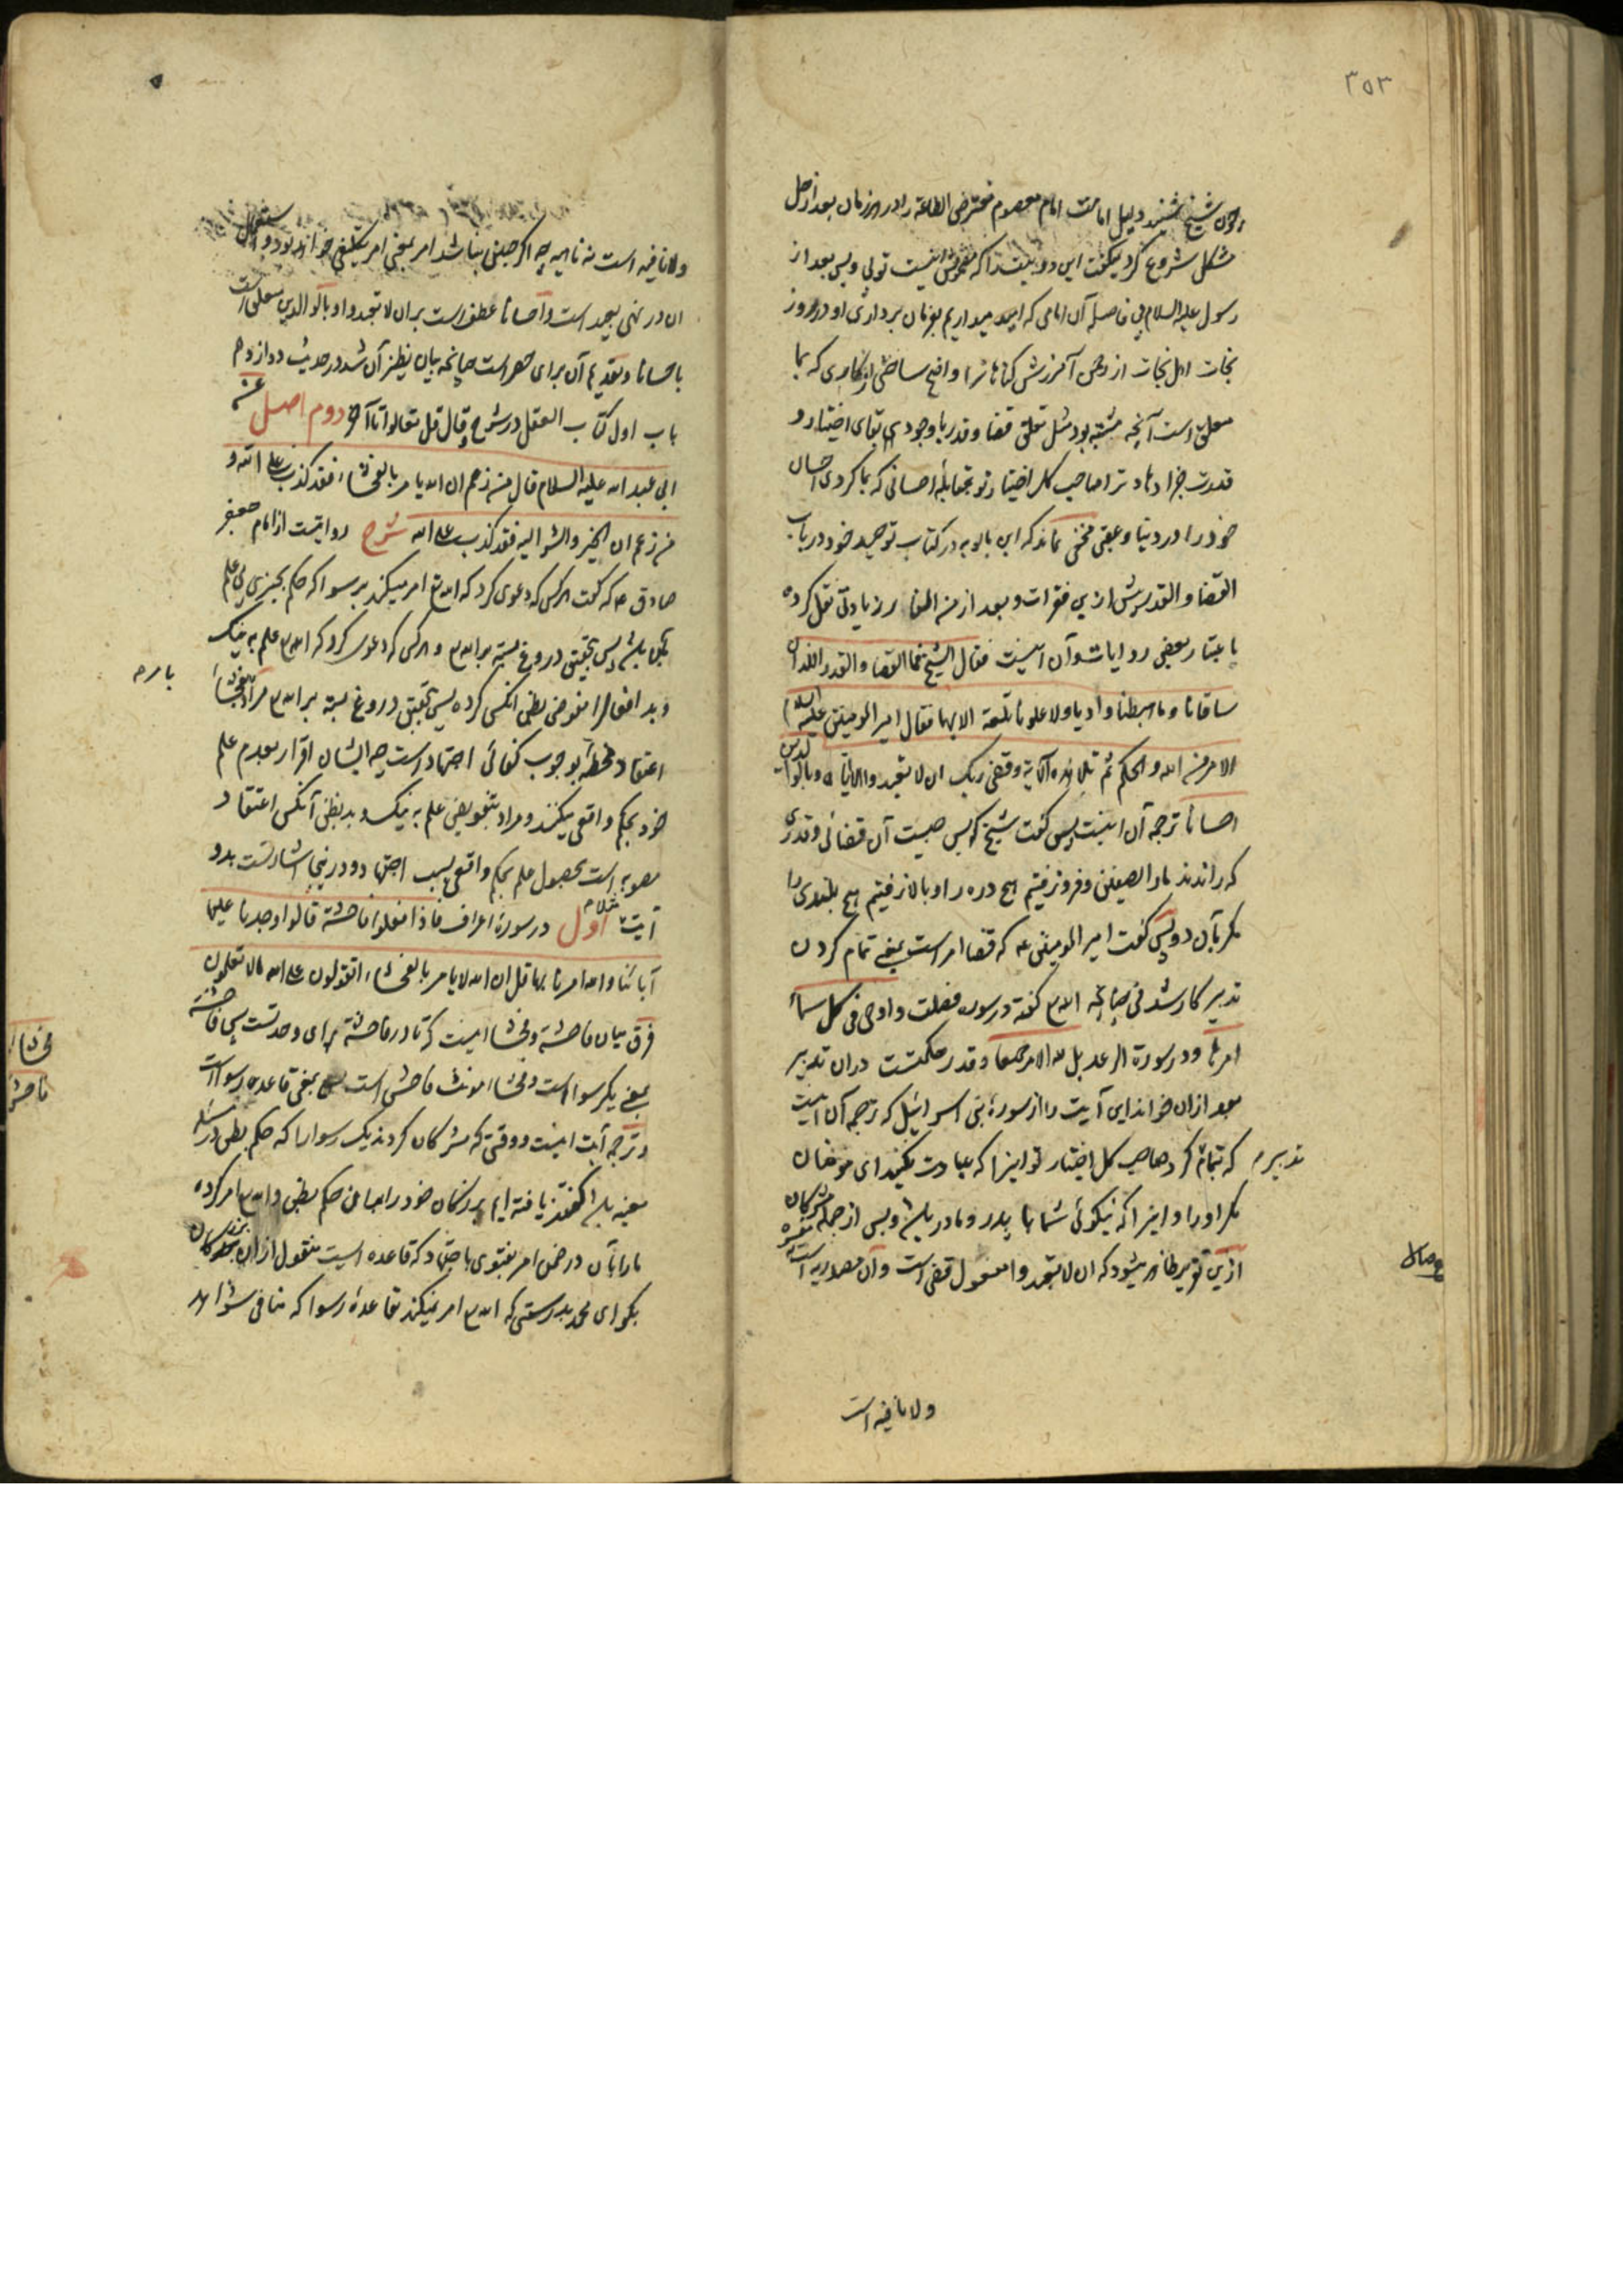 ۳۵۳
چون شیخ شنید دلیل امامت امام معصوم مفترض الطاعة را در هر زمان بعد از حل
مشکل شروع کرد بگفت این دو بیت را که مضمونش اینست تویی وبس بعد از
رسول علیه السلام بی فاصله آن امامی که امید میداریم بفرمان برداری او در روز
نجات اهل نجات از رحمن آمرزش گناهانرا واضح ساختی از کار دین که بما
معلق است آنچه مشتبه بود مثل تعلق قضا و قدر با وجودی بقای اختیار و
قدرت جزا دهاد ترا صاحب کل اختیار تو بمقابله احسانی که بما کردی احسان
خود را در دنیا و عقبی مخفی نماند که ابن بابویه در کتاب توحید خود در باب
القضا والقدر پیش ازین فقرات وبعد از من النار زیادتی نقل کرده
باعتبار بعضی روایات وآن اینست فقال الشیخ فما القضا والقدر اللذان
ساقانا وما هبطنا وادیا ولا علونا تلعة الا بهما فقال امیر المومنین علیه السلام
الامر من الله والحکم ثم تلا هذه الآیة وقضی ربک ان لا تعبدوا الا ایاه وبالوالدین
احسانا ترجمه آن اینست پس گفت شیخ که پس چیست آن قضائی وقدری
که راندند ما را بصفین وفرو نرفتیم هیچ دره را وبالا نرفتیم هیچ بلندی را
مگر بآن دو پس گفت امیر المومنین ع که قضا امر است بمعنی تمام کردن
تدبیر کار شدنی چنانچه الله تع گفته در سوره فصلت واوحی فی کل سماء
امرها ودر سورة الرعد بل لله الامر جمیعا وقدر حکمتست در آن تدبیر
بعد از آن خواند این آیت را از سورهٔ بنی اسرائیل که ترجمه آن اینست
تدبیر م
که تمام کرد صاحب کل اختیار تو اینرا که عبادت مکنید ای مومنان
مگر او را و اینرا که نیکوئی شما با پدر ومادر باشد وبس از جمله مشرکان
ازین تقریر ظاهر میشود که ان لا تعبدوا مفعول قضی است وآن مصدریه است
ولا نافیه است
ولا نافیه است نه ناهیه چه اگر چنین نباشد امر بمعنی امر تکلیفی خواهد بود و استعمال
ان در نهی بعید است واحسانا عطف است بر ان لا تعبدوا وبالوالدین متعلق است
باحسانا وتقدیم آن برای حصر است چنانچه بیان نظیر آن شد در حدیث دوازدهم
باب اول کتاب العقل در شرح وقال قل تعالوا تا آخر دوم اصل عن
ابی عبد الله علیه السلام قال من زعم ان الله یامر بالفحشاء فقد کذب علی الله و
من زعم ان الخیر والشر الیه فقد کذب علی الله شرح روایتست از امام جعفر
صادق ع که گفت هر کس که دعوی کرد که الله تع امر میکند برسوا که حکم بچیزی بی علم
بآن باشد پس بتحقیق دروغ بسته بر الله تع و هر کس که دعوی کرد که الله تع علم به نیک
و بد افعال را مفوض بظن آنکس کرده پس بتحقیق دروغ بسته بر الله تع مراد بفحشا
اعتقاد مخطئه بوجوب کفائی اجتهاد است چه ایشان اقرار بعدم علم
خود بحکم واقعی میکنند ومراد بتفویض علم به نیک وبد بظن آنکس اعتقاد
مصوبه است بحصول علم بحکم واقعی بسبب اجتهاد ودر اینجا اشارتست بدو
آیت اول در سورهٔ اعراف فاذا فعلوا فاحشة قالوا وجدنا علیها
آباءنا والله امرنا بها قل ان الله لا یامر بالفحشاء اتقولون علی الله ما لا تعلمون
فرق میان فاحشة وفحشا اینست که تا در فاحشة برای وحدتست پس فاحشة
بمعنی یک رسوا است وفحشا مونث فاحش است بمعنی قاعده رسواست
و ترجمه آیت اینست و وقتی که مشرکان کردند یک رسوا را که حکم بظن در مسئله
معینه باشد گفتند یافته ایم بزرگان خود را صاحب حکم بظن والله تع امر کرده
ما را بآن در ضمن امر بفتوی باجتهاد که قاعده ایست منقول از آن بزرگان
بگو ای محمد بدرستی که الله تع امر نمیکند بقاعدهٔ رسوا که منافی شواهد
فحشاء
فاحشة